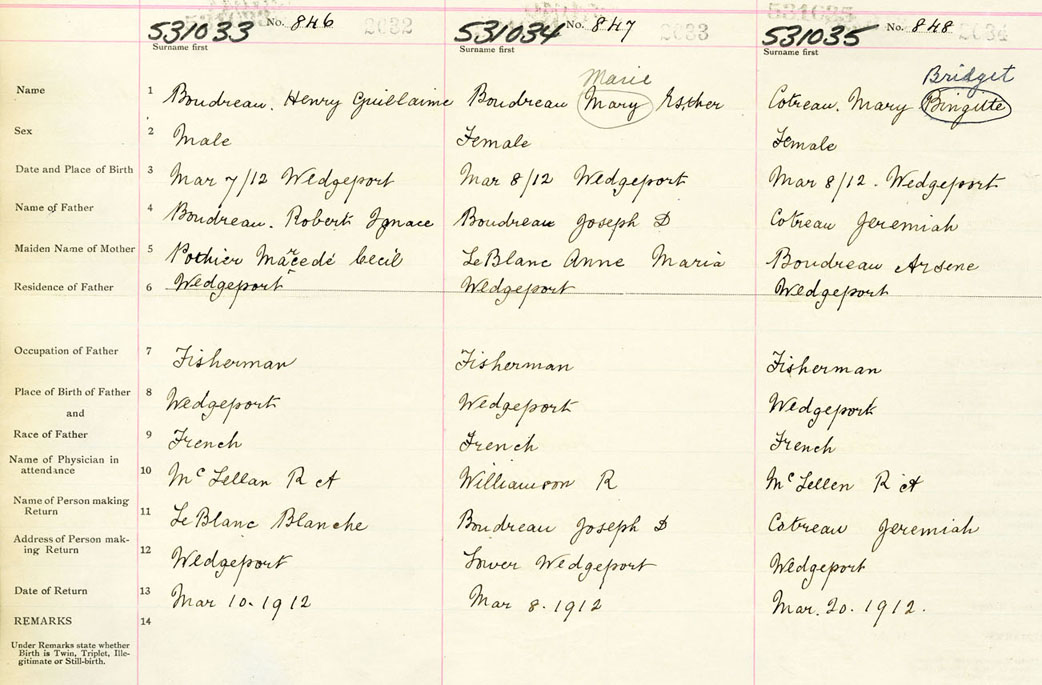 531033 No. 846 2032 531034 No. 847 2033 531035 No. 848 2034
Surname first Surname first Surname first
Marie Bridget
Name 1 Boudreau. Henry Guillaime Boudreau Mary Esther Cotreau. Mary Bingitte
Sex 2 Male Female Female
Date and Place of Birth 3 Mar 7/12 Wedgeport Mar 8/12 Wedgeport Mar 8/12. Wedgeport
Name of Father 4 Boudreau. Robert Ignace Boudreau Joseph D Cotreau Jeremiah
Maiden Name of Mother 5 Pothier Macedé Cecil LeBlanc Anne Maria Boudreau Arsene
Residence of Father 6 Wedgeport Wedgeport Wedgeport
Occupation of Father 7 Fisherman Fisherman Fisherman
Place of Birth of Father 8 Wedgeport Wedgeport Wedgeport
and
Race of Father 9 French French French
Name of Physician in
attendance 10 McLellan R A Williamson R McLellen R A
Name of Person making
Return 11 LeBlanc Blanche Boudreau Joseph D Cotreau Jeremiah
Address of Person mak-
ing Return 12 Wedgeport Lower Wedgeport Wedgeport
Date of Return 13 Mar 10. 1912 Mar 8. 1912 Mar. 20. 1912.
REMARKS 14
Under Remarks state whether
Birth is Twin, Triplet, Ille-
gitimate or Still-birth.